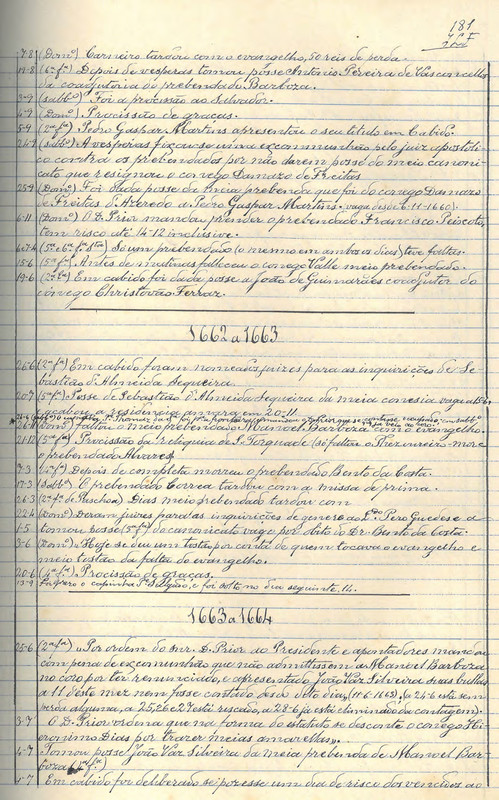 181
7-8 (Domº) Carneiro tardou com o evangelho, 50 reis de perda.
19-8 (6ª fª) Depois de vesperas tomou posse Antonio Pereira de Vasconcellos
da coadjutoria do prebendado Barboza.
3-9 (sabbº) Foi a procissão ao Salvador.
4-9 (Domº) Procissão de graças.
5-9 (2ª fª) Pedro Gaspar Martins apresentou o seu titulo em Cabido.
24-9 (sabbº) A vesporas fixou-se uma excommunhão pelo juiz apostoli-
co contra os prebendados por não darem posse do meio canonica-
to que resignou o conego Damazo de Freitas
25-9 (Domº) Foi dada posse da meia prebenda que foi do conego Damazo
de Freitas d'Azeredo a Pedro Gaspar Martins, vaga desde 6-11-1660).
6-11 (Domº) O D. Prior mandou prender o prebendado Francisco Peixoto,
tem risco até 14-12 inclusive.
Só um prebendado (o mesmo em ambos os dias) teve faltas.
15-6 (5ª fª) Antes de matinas falleceu o conego Valle meio prebendado.
19-6 (2ª fª) Em cabido foi dada posse a João de Guimarães coadjutor do
conego Christovão Ferraz.
1662 a 1663
26-6 (2ª fª) Em cabido foram nomeados juizes para as inquirições de Se-
bastião d'Almeida Sequeira.
20-7 (5ª fª) Posse de Sebastião d'Almeida Sequeira da meia conesia vaga a 15-6,
acabou a residencia amara em 20-11.
26-11 (Domº) faltou o meio prebendado Manoel Barboza com o evangelho.
21-12 (5ª fª) Procissão da reliquia de S. Torquade (só faltou o Thezoureiro-mor e
o prebendado Alvares)
7-3 (4ª fª) Depois de completa morreu o prebendado Bento da Costa.
17-3 (sabbº) O prebendado Correa tardou com a missa de prima.
26-3 (2ª fª de Paschoa) Dias meio prebendado tardou com
22-4 (Domº) Deram juizes para as inquirições de genere ao Pero Guedes e a
1-5 tomou posse (5ª fª) do canonicato vago por obito do Dr. Bento da Costa.
3-6 (Domº) "Hoje se deu um tostão por conta de quem tocava o evangelho e
meio tostão da falta do evangelho.
20-6 (4ª fª) Procissão de graças.
1663 a 1664
25-6 (2ª fª) "Por ordem do snr. D. Prior ao Presidente e apontadores mandou
com pena de excomunhão que não admittissem a Manoel Barboza
no coro por ter renunciado, e apresentado João Vaz Silveira suas bullas
a 11 d'este mez nem fosse contado desde dito dia, (11-6-1663). (a 24-6 está sem
verba alguma, a 25, 26 e 27 está riscado, a 28-6 já está eliminado da contagem).
3-7 O D. Prior ordena que na forma do estatuto se desconte o conego Hi-
eronimo Dias por trazer meias amarellas".
4-7 Tomou posse João Vaz Silveira da meia prebenda de Manoel Bar-
boza (4ª fª)
Em cabido foi deliberado se pozesse um dia de risco dos vencidos ao